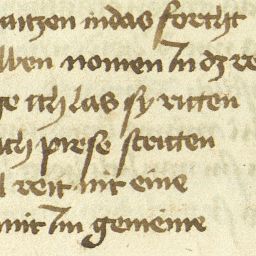 aitzen in das forcht
lben nomen In dz re
ge ich las sy ritten
ich pirse stritten
l reit mit eine
mit Im gemeine